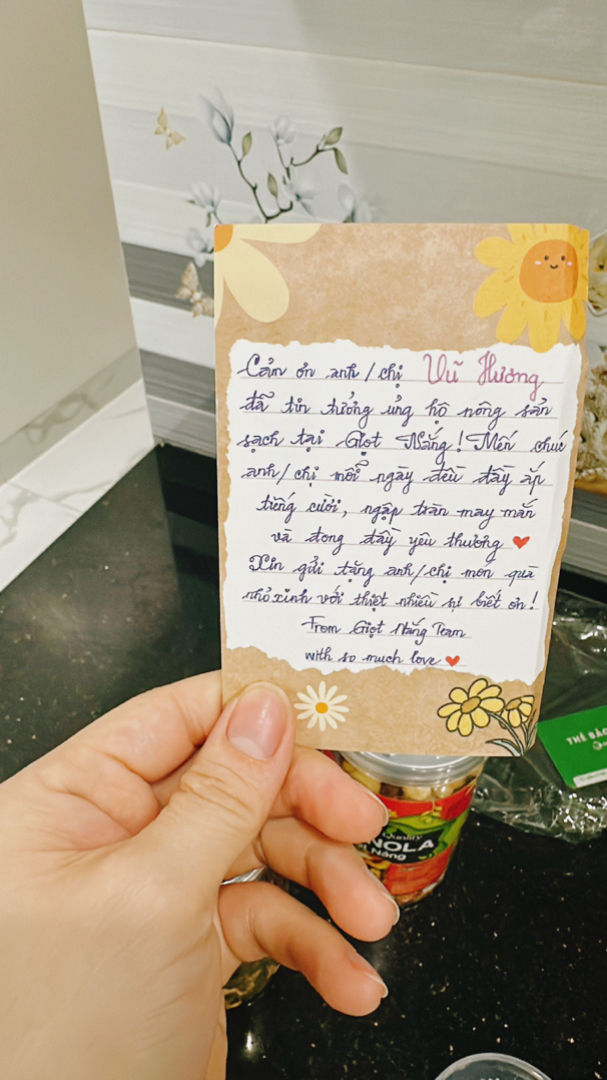 Cảm ơn anh/chị Vũ Hương
đã tin tưởng ủng hộ nông sản
sạch tại Giọt Nắng! Mến chúc
anh/chị mỗi ngày đều đầy ắp
tiếng cười, ngập tràn may mắn
và đong đầy yêu thương
Xin gửi tặng anh/chị món quà
nhỏ xinh với thiệt nhiều sự biết ơn!
From Giọt Nắng Team
with so much love
THẺ BẢO
NOLA
Nắng